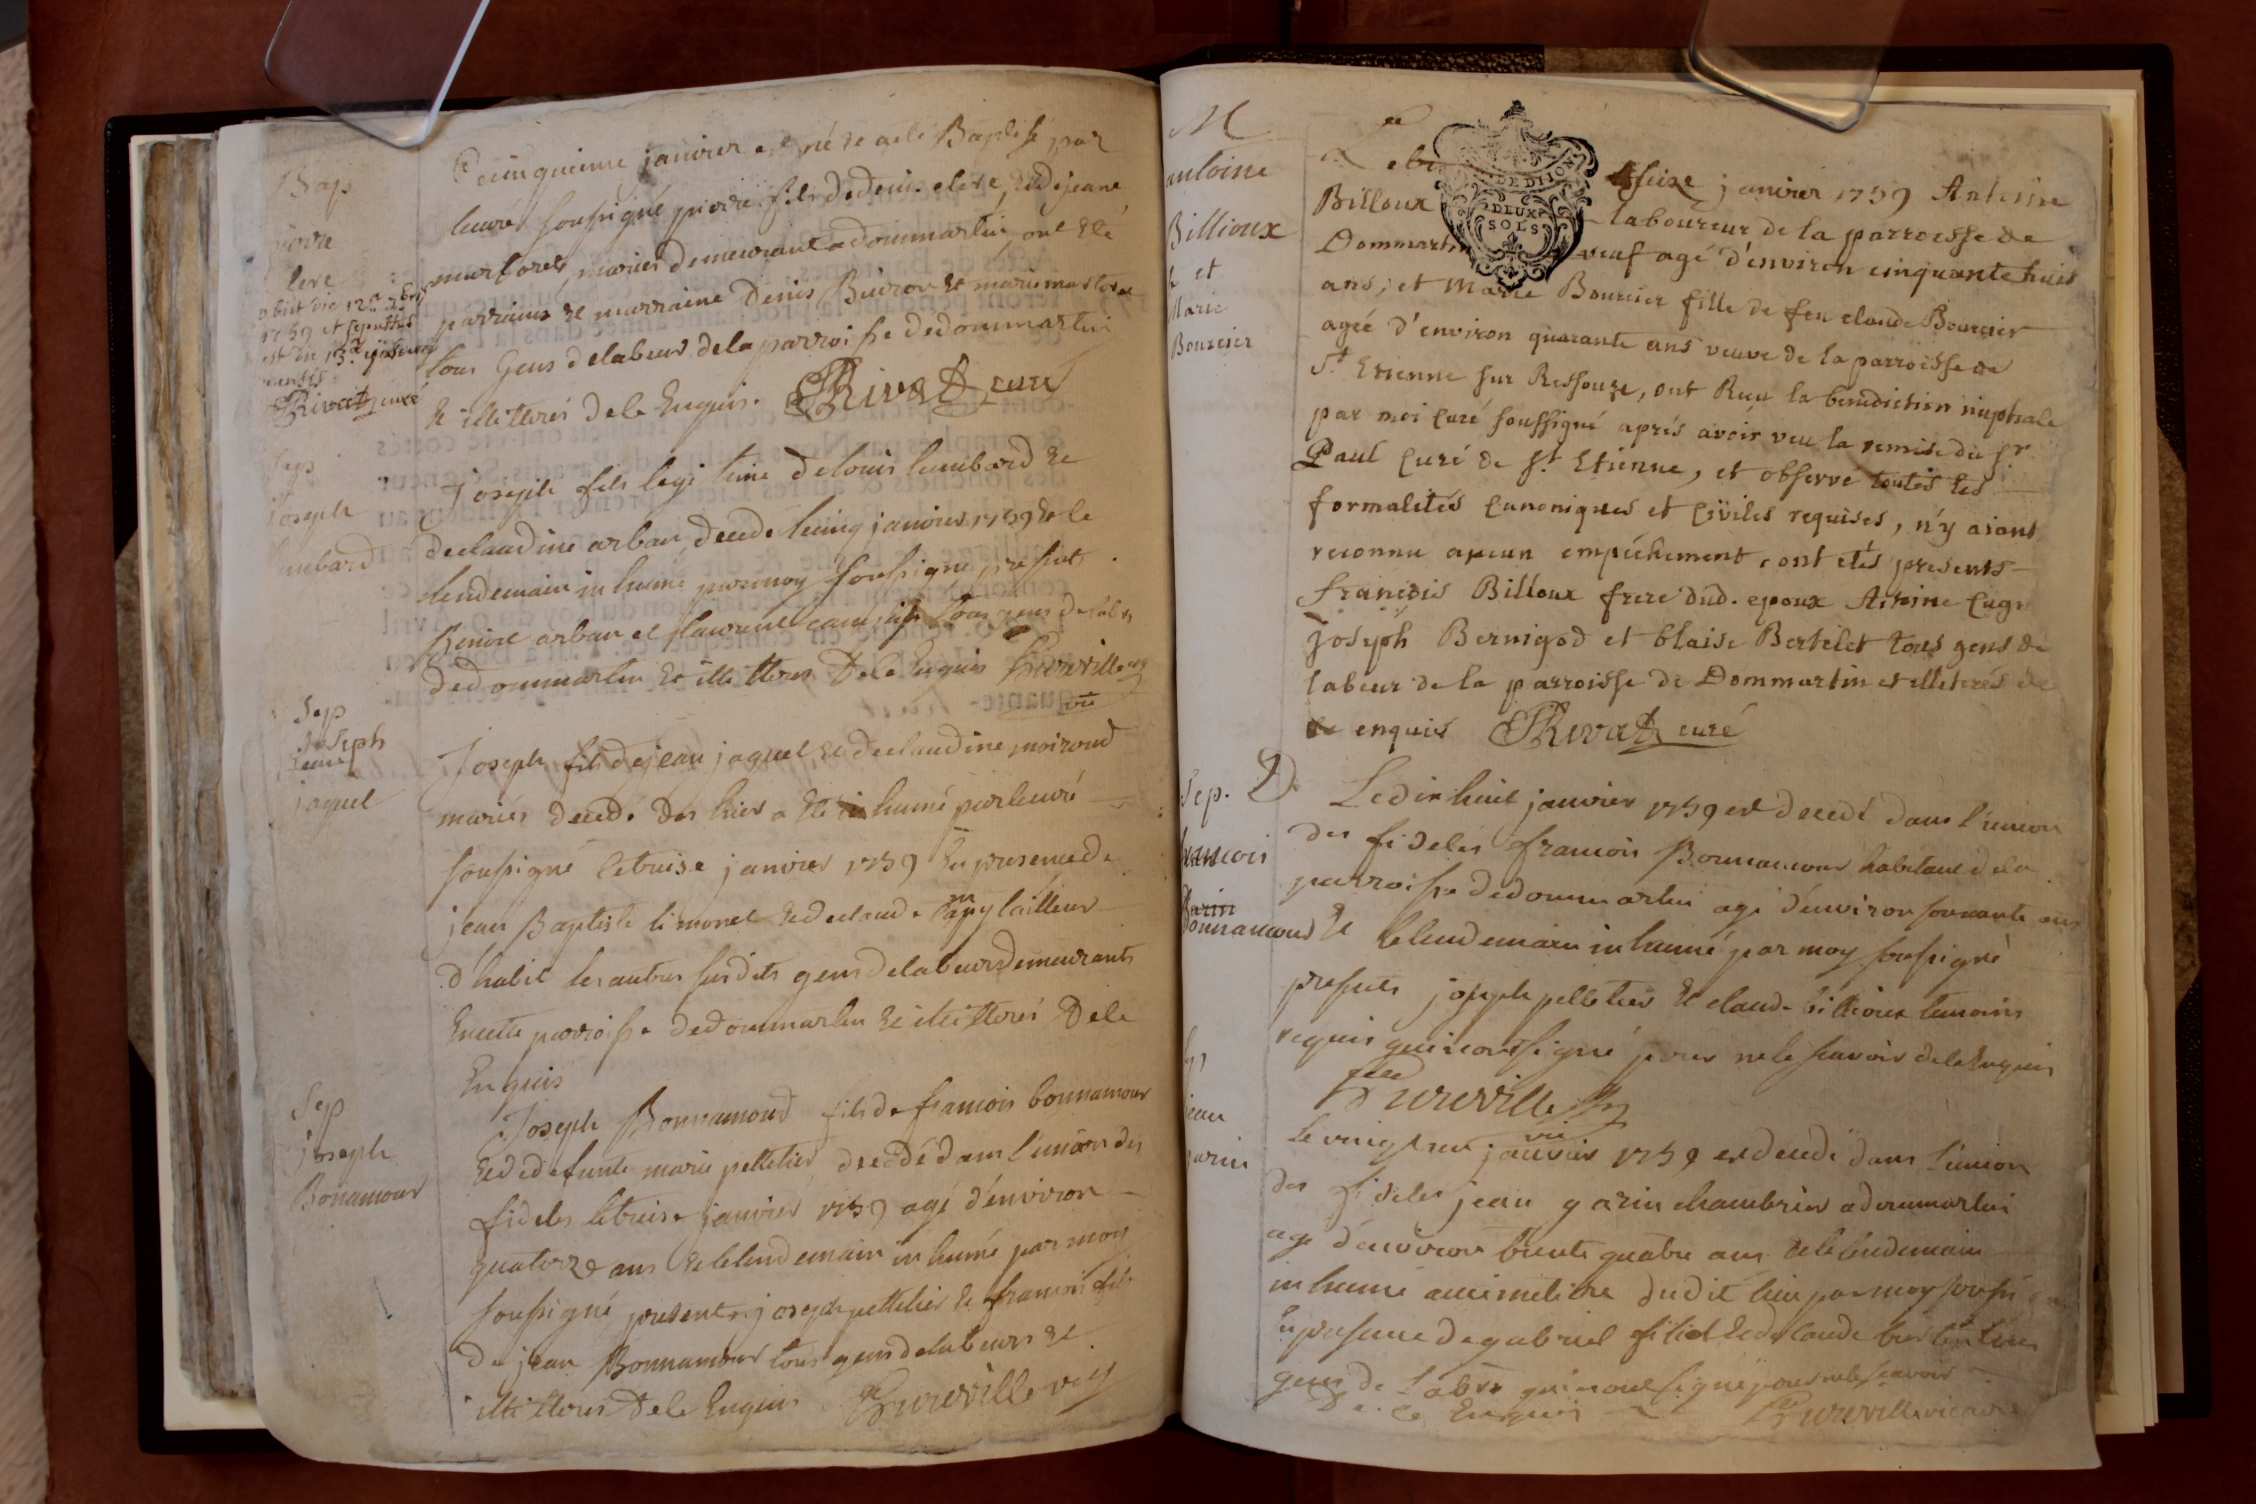 Bap
pierre
clere
obiit die 12a 7bris
1759 et sepultus
est die 13a ejusdem
mensis
Rivat curé
Le cinquieme janvier est né et a eté Baptisé par
le curé soussigné pierre fils de denis clere, et de jeane
marforet, mariés demeurant a dommartin, ont eté
parrain et marraine Denis Buiron et marie marforet
tous Gens de labeur de la parroisse de dommartin
et illitterés de ce Enquis. Rivat curé
Sep
joseph
lumbard
joseph fils legitime de louis lumbard et
de claudine arban, decedé le cinq janvier 1759 et le
lendemain inhumé par moy soussigné présents
Benoit arban et tous gens de lab.
de dommartin et illitteres de ce Enquis
vic
Sep
Joseph
jaquet
Joseph fils de jean jaquet, et de claudine moiroud
mariés decedé des hier a eté inhumé par le curé
soussigné le treise janvier 1759 En presence de
jean Baptiste limonet et de claude tailleur
d'habit les autres susdits gens de labeur demeurants
En cette parroisse de dommartin et illitterés de ce
Enquis
Sep
joseph
Bonamour
Joseph Bonnamour fils de francois bonnamour
et de defunte marie pelletier, decedé dans l'union des
fideles le treise janvier 1759 agé d'environ
quatorze ans et le lendemain inhumé par moy
soussigné présents joseph pelletier et francois fils
de jean Bonnamour tous gens de labeurs et
illitteres de ce Enquis
M
antoine
Billioux
et
Marie
Bourcier
DE DIJON
DEUX
SOLS
seize janvier 1759 Antoine
Billoux laboureur de la parroisse de
Dommartin veuf agé d'environ cinquante huit
ans; et Marie Bourcier fille de feu claude Bourcier
ageé d'environ quarante ans veuve de la parroisse de
St Etienne sur Ressouze, ont Reçu la benediction nuptiale
par moi curé soussigné aprés avoir veu la remise du Sr
Paul curé de St Etienne, et observé toutes les
formalités canoniques et civiles requises, n'y aiant
reconnu aucun empéchement, ont etés presents
francois Billoux frere dud. epoux Antoine
Joseph Bernigod et blaise Bertelet tous gens de
labeur de la parroisse de Dommartin et illeterés de
ce enquis Rivat curé
Sep.
francois
Bonnamour
Le dix huit janvier 1759 est decedé dans l'union
des fideles francois Bonnamour habitant de la
parroisse de dommartin agé d'environ soixante ans
et le lendemain inhumé par moy soussigné
presents joseph pelletier et claude billioux temoins
requis qui n'ont signé pour ne le scavoir de ce Enquis
vic
Sep
jean
garin
Le vingt un janvier 1759 est decedé dans l'union
des fideles jean garin chambrier a dommartin
agé d'environ trente quatre ans et le lendemain
inhumé au cimetiere dudit lieu par moy
En presence de gabriel et de claude
gens de labeur qui n'ont signé pour ne le scavoir
De ce Enquis